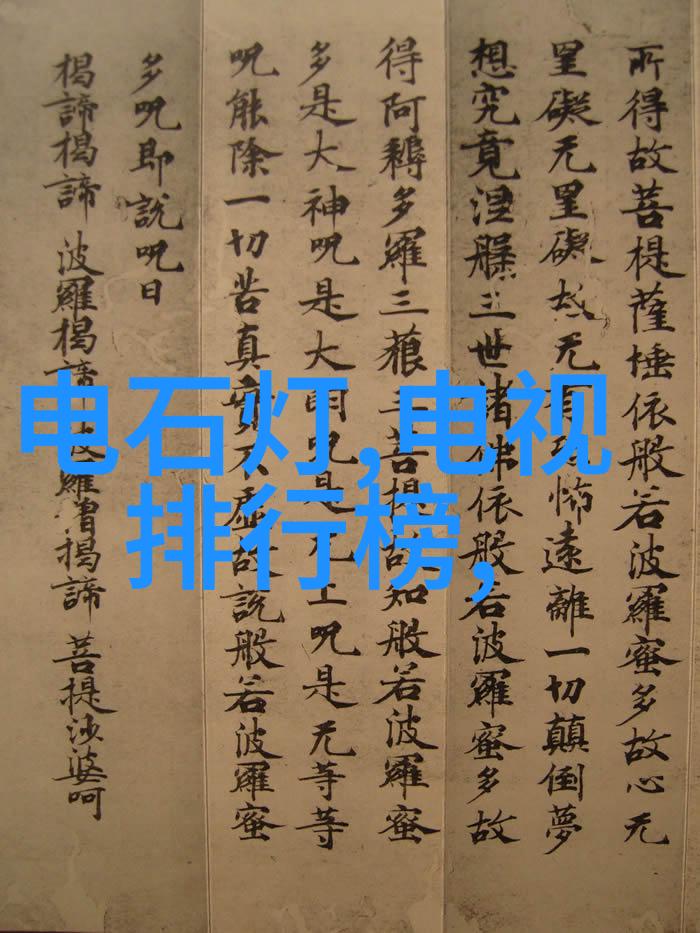 所得故菩提薩埵依般若波羅蜜多故心无
罣礙无罣礙故无有恐怖遠離一切顛倒夢
想究竟涅槃三世諸佛依般若波羅蜜多故
得阿耨多羅三藐三菩提故知般若波羅蜜
多是大神呪是大明呪是无上呪是无等等
呪能除一切苦真實不虛故說般若波羅蜜
多呪即說呪曰
揭諦揭諦 波羅揭諦 波羅僧揭諦 菩提沙婆呵
电石灯,电视
排行榜,